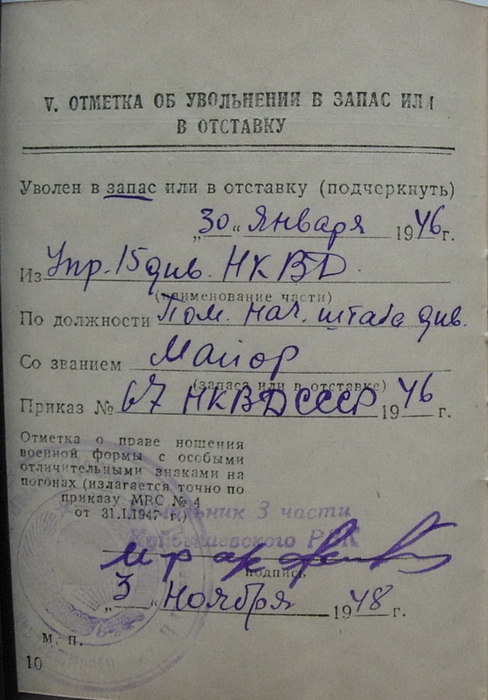 V. ОТМЕТКА ОБ УВОЛЬНЕНИИ В ЗАПАС ИЛИ
В ОТСТАВКУ
Уволен в запас или в отставку (подчеркнуть)
„30“ Января 1946 г.
Из Упр. 15 див. НКВД.
(наименование части)
По должности Пом. нач. штаба див.
Со званием Майор
(запаса или в отставке)
Приказ № 67 НКВД СССР 1946 г.
Отметка о праве ношения
военной формы с особыми
отличительными знаками на
погонах (излагается точно по
приказу МВС № 4
от 31.I.1947 г.)
Начальник 3 части
Куйбышевского РВК
подпись
„3“ Ноября 1948 г.
М. П.
10